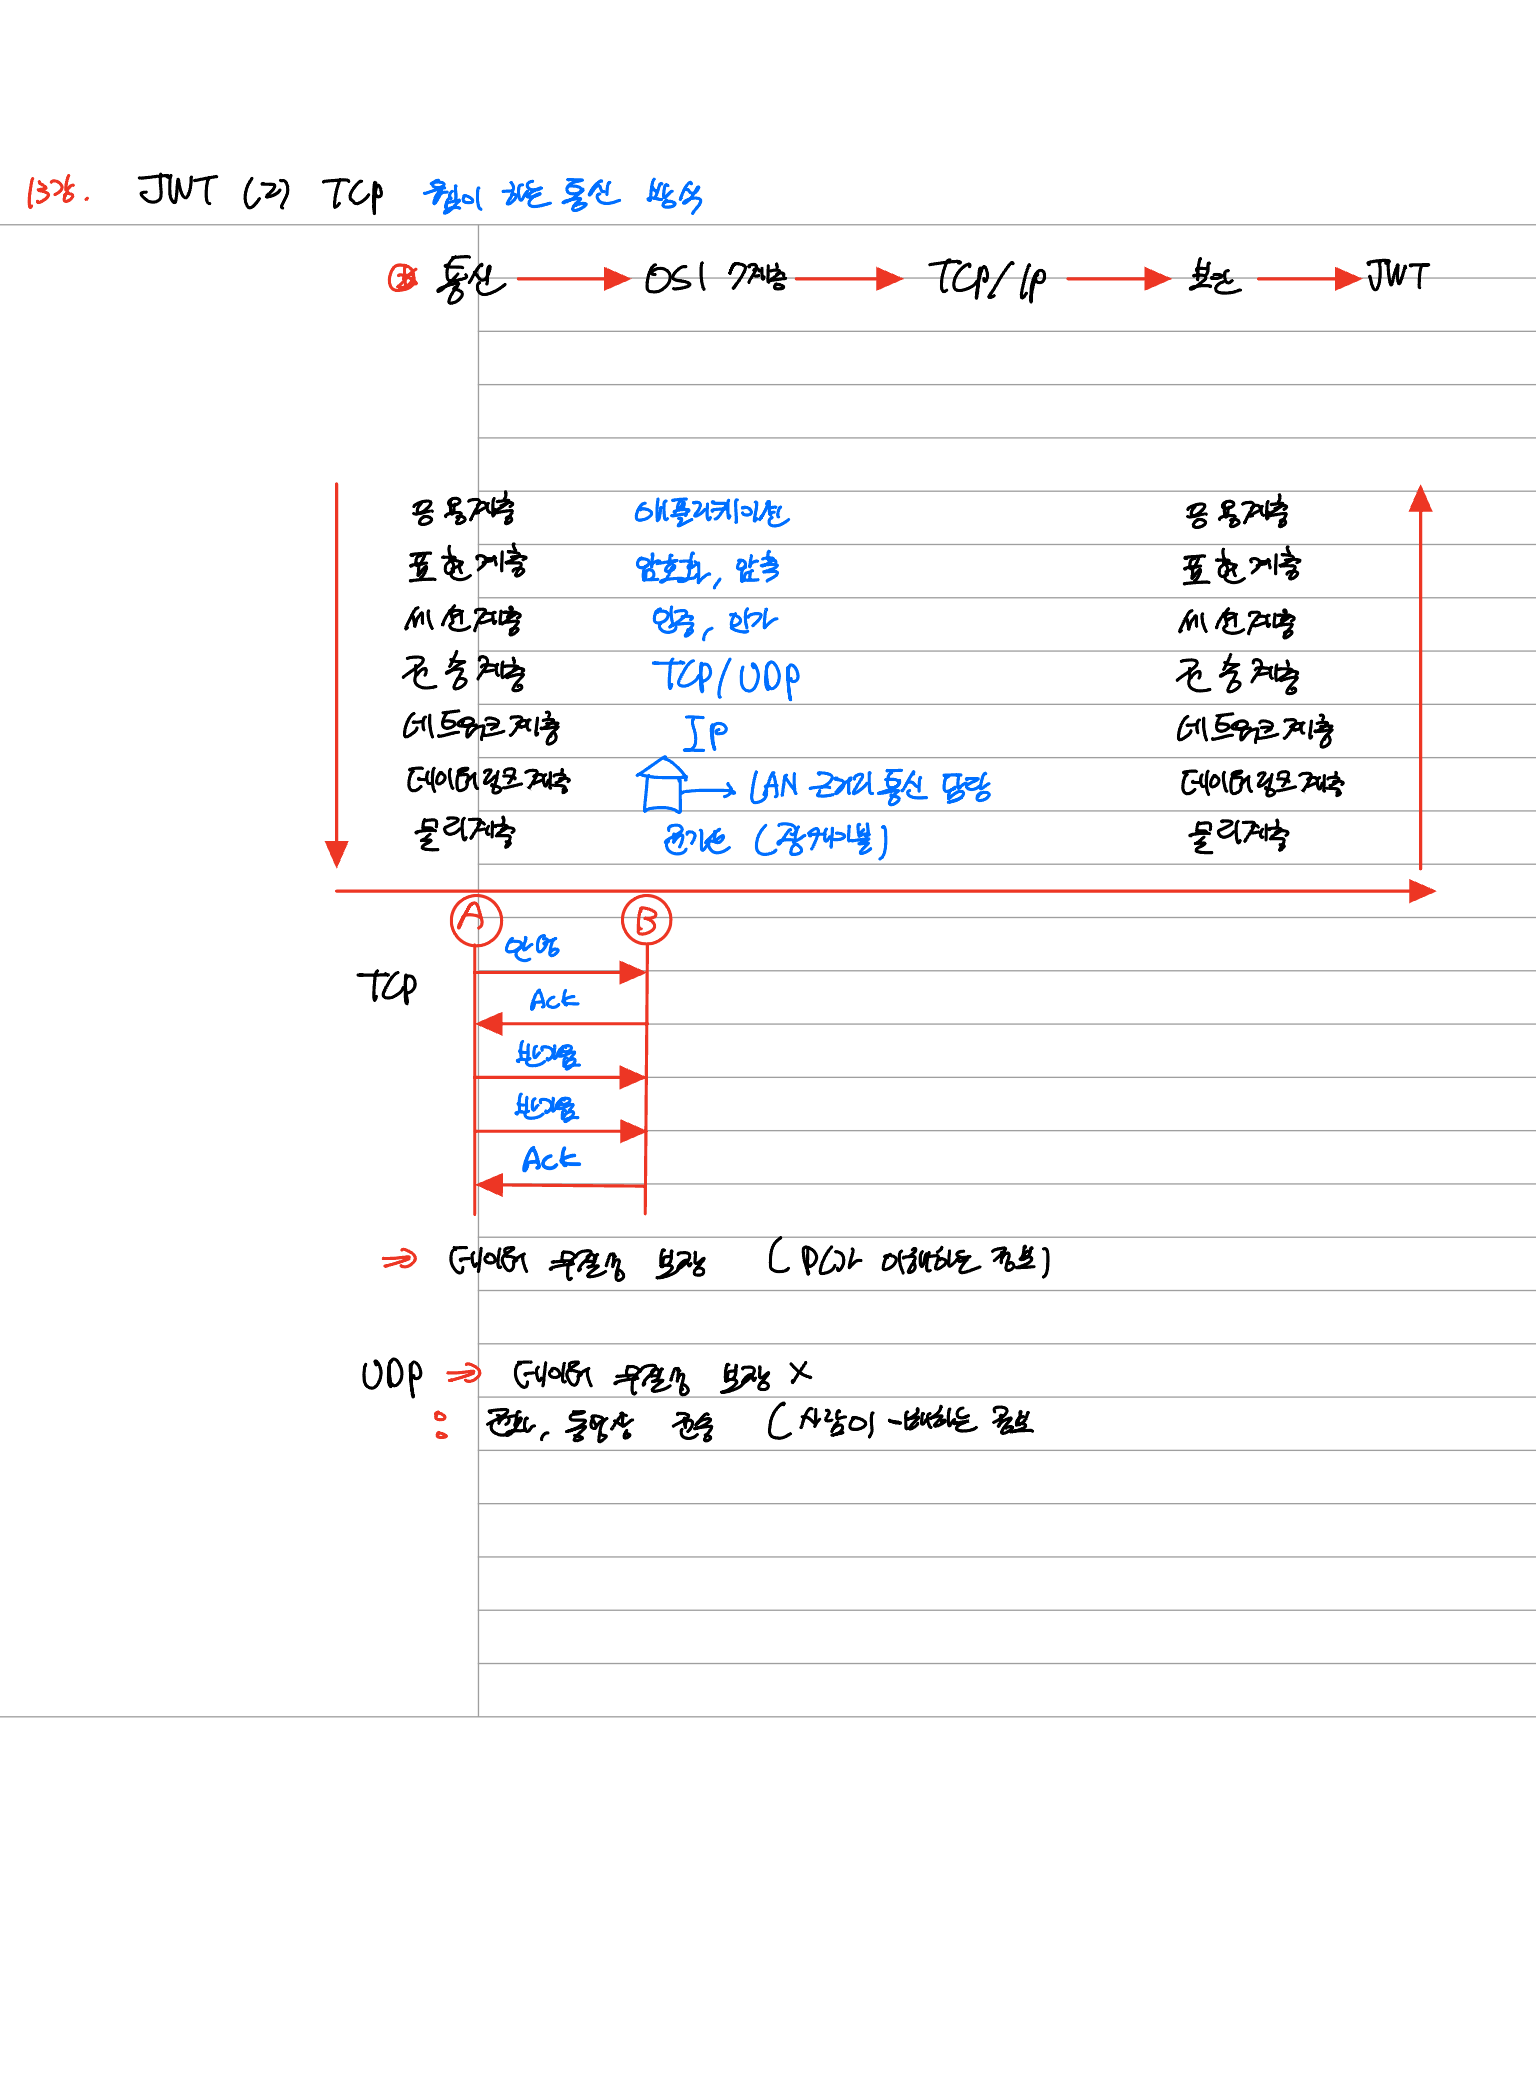 13강. JWT (2) TCP 웹이 하는 통신 방식
통신 → OSI 7계층 → TCP/IP → 보안 → JWT
응용계층 애플리케이션 응용계층
표현계층 암호화, 압축 표현계층
세션계층 인증, 인가 세션계층
전송계층 TCP/UDP 전송계층
네트워크계층 IP 네트워크계층
데이터링크계층 → LAN 근거리 통신 담당 데이터링크계층
물리계층 전기선 (광케이블) 물리계층
A B
안녕
TCP
Ack
반가움
반가움
Ack
⇒ 데이터 무결성 보장 (PC가 이해하는 정보)
UDP ⇒ 데이터 무결성 보장 X
: 전화, 동영상 전송 (사람이 하는